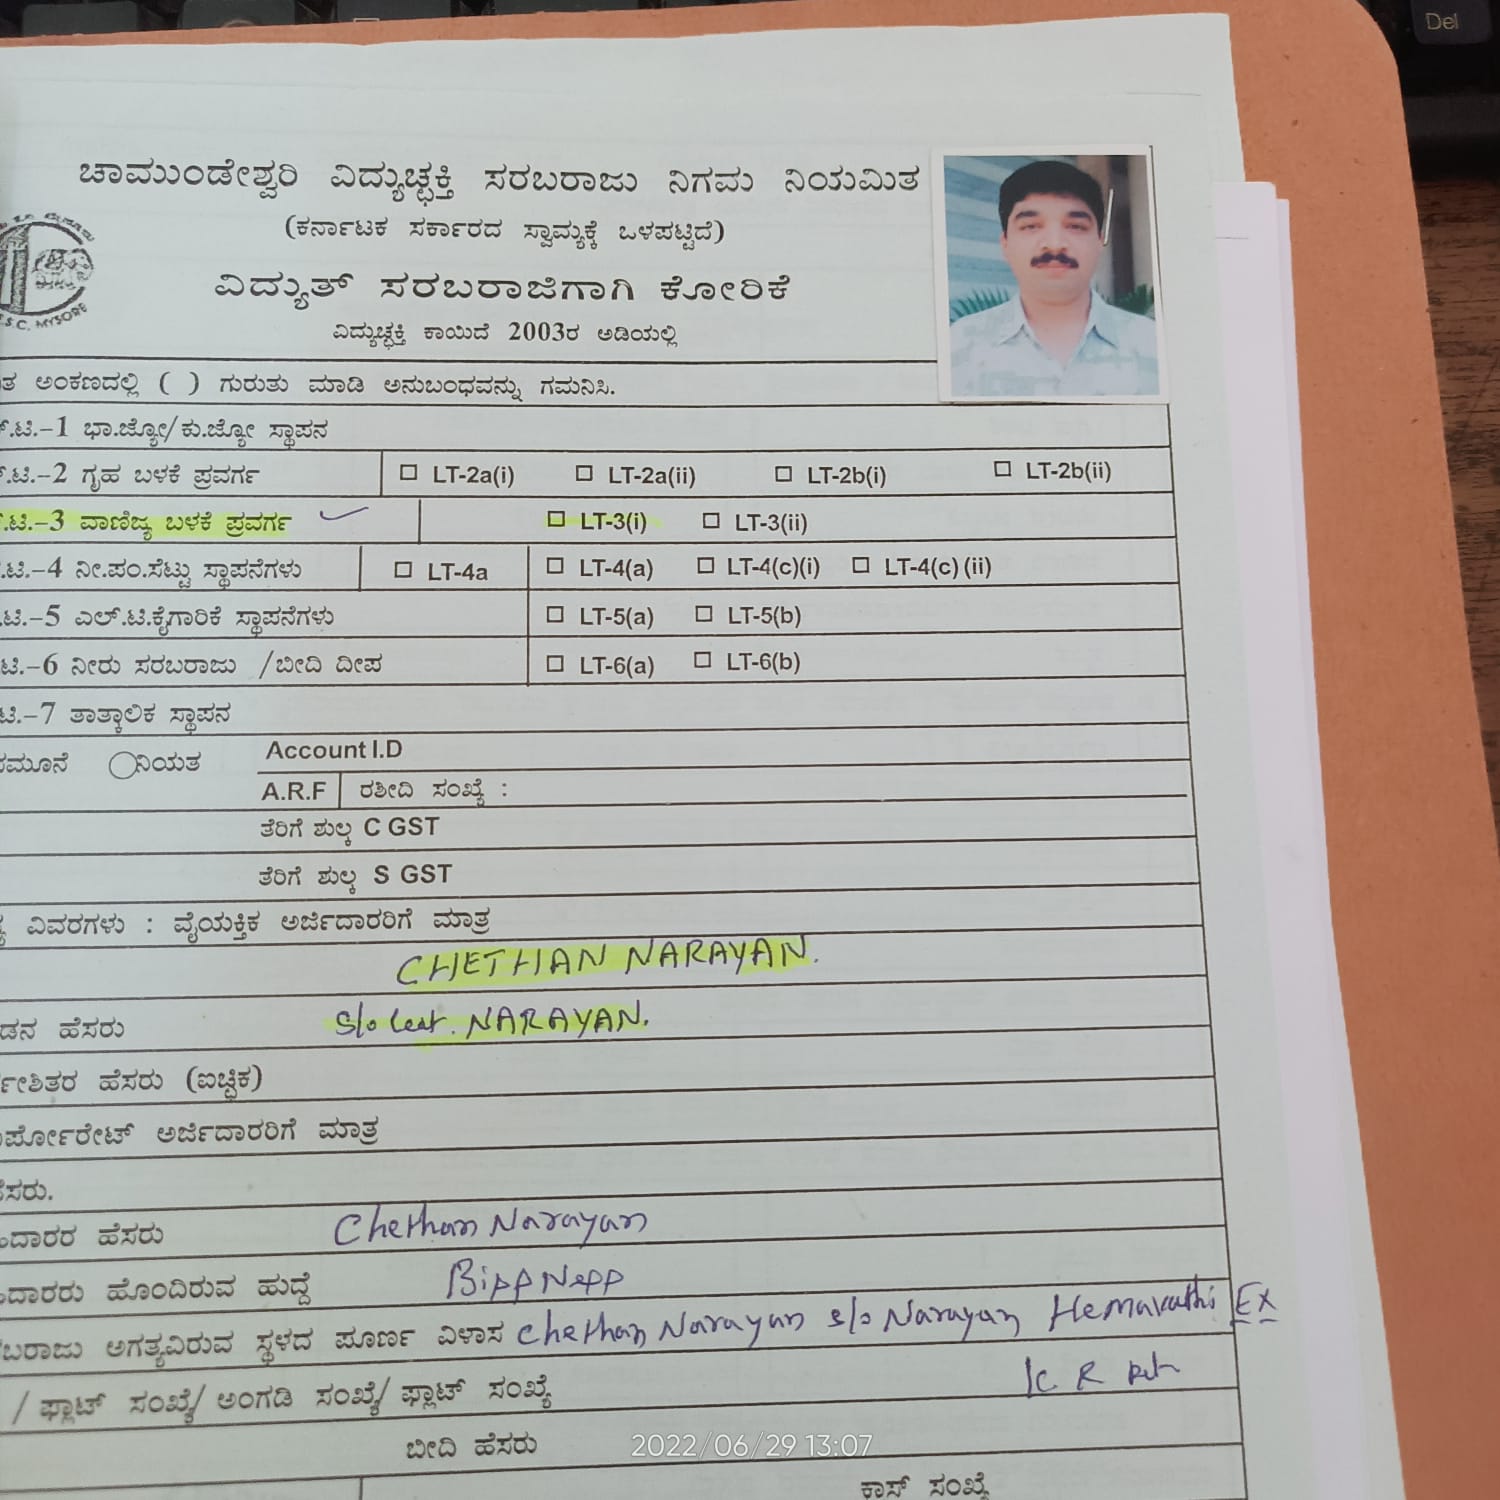 Del
ಚಾಮುಂಡೇಶ್ವರಿ ವಿದ್ಯುಚ್ಛಕ್ತಿ ಸರಬರಾಜು ನಿಗಮ ನಿಯಮಿತ
(ಕರ್ನಾಟಕ ಸರ್ಕಾರದ ಸ್ವಾಮ್ಯಕ್ಕೆ ಒಳಪಟ್ಟಿದೆ)
ವಿದ್ಯುತ್ ಸರಬರಾಜಿಗಾಗಿ ಕೋರಿಕೆ
S.C. MYSORE
ವಿದ್ಯುಚ್ಛಕ್ತಿ ಕಾಯಿದೆ 2003ರ ಅಡಿಯಲ್ಲಿ
ತ ಅಂಕಣದಲ್ಲಿ ( ) ಗುರುತು ಮಾಡಿ ಅನುಬಂಧವನ್ನು ಗಮನಿಸಿ.
.ಟಿ.–1 ಭಾ.ಜ್ಯೋ/ಕು.ಜ್ಯೋ ಸ್ಥಾಪನ
.ಟಿ.–2 ಗೃಹ ಬಳಕೆ ಪ್ರವರ್ಗ ☐ LT-2a(i) ☐ LT-2a(ii) ☐ LT-2b(i) ☐ LT-2b(ii)
.ಟಿ.–3 ವಾಣಿಜ್ಯ ಬಳಕೆ ಪ್ರವರ್ಗ ✓ ☐ LT-3(i) ☐ LT-3(ii)
.ಟಿ.–4 ನೀ.ಪಂ.ಸೆಟ್ಟು ಸ್ಥಾಪನೆಗಳು ☐ LT-4a ☐ LT-4(a) ☐ LT-4(c)(i) ☐ LT-4(c) (ii)
.ಟಿ.–5 ಎಲ್.ಟಿ.ಕೈಗಾರಿಕೆ ಸ್ಥಾಪನೆಗಳು ☐ LT-5(a) ☐ LT-5(b)
ಟಿ.–6 ನೀರು ಸರಬರಾಜು /ಬೀದಿ ದೀಪ ☐ LT-6(a) ☐ LT-6(b)
ಟಿ.–7 ತಾತ್ಕಾಲಿಕ ಸ್ಥಾಪನ
ಮೂನೆ ನಿಯತ Account I.D
A.R.F ರಶೀದಿ ಸಂಖ್ಯೆ :
ತೆರಿಗೆ ಶುಲ್ಕ C GST
ತೆರಿಗೆ ಶುಲ್ಕ S GST
ವಿವರಗಳು : ವೈಯಕ್ತಿಕ ಅರ್ಜಿದಾರರಿಗೆ ಮಾತ್ರ
CHETHAN NARAYAN.
ಡನ ಹೆಸರು S/o Leat. NARAYAN.
ೇಶಿತರ ಹೆಸರು (ಐಚ್ಛಿಕ)
ರ್ಪೋರೇಟ್ ಅರ್ಜಿದಾರರಿಗೆ ಮಾತ್ರ
ಸರು.
ದಾರರ ಹೆಸರು Chethan Narayan
ದಾರರು ಹೊಂದಿರುವ ಹುದ್ದೆ
ಬರಾಜು ಅಗತ್ಯವಿರುವ ಸ್ಥಳದ ಪೂರ್ಣ ವಿಳಾಸ Chethan Narayan s/o Narayan Hemavathi Ex
/ ಫ್ಲಾಟ್ ಸಂಖ್ಯೆ/ ಅಂಗಡಿ ಸಂಖ್ಯೆ/ ಫ್ಲಾಟ್ ಸಂಖ್ಯೆ K R
ಬೀದಿ ಹೆಸರು
2022/06/29 13:07
ಕಾಸ್ ಸಂಖ್ಯೆ